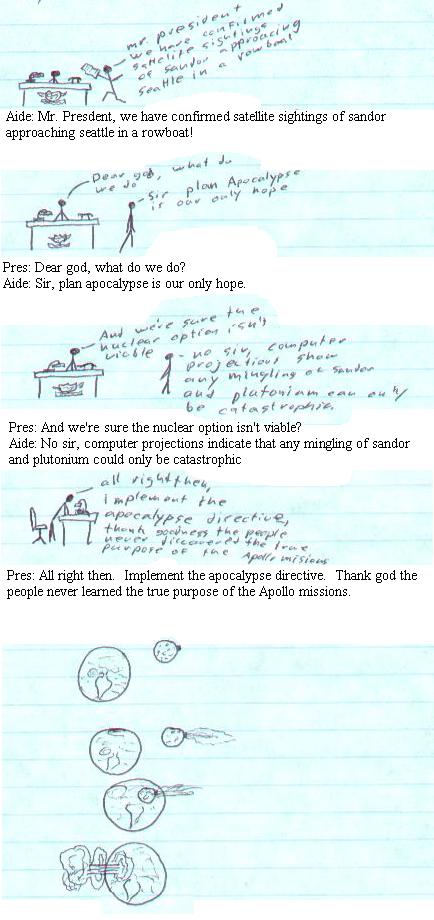 mr. president
we have confirmed
sattelite sightings
of sandor approacing
seattle in a rowboat
Aide: Mr. Presdent, we have confirmed satellite sightings of sandor
approaching seattle in a rowboat!
Dear god, what do
we do
Sir plan Apocalypse
is our only hope
Pres: Dear god, what do we do?
Aide: Sir, plan apocalypse is our only hope.
And we're sure the
nuclear option isn't
viable
no sir, computer
projections show
any mingling of sandor
and plutonium can only
be catastrophic.
Pres: And we're sure the nuclear option isn't viable?
Aide: No sir, computer projections indicate that any mingling of sandor
and plutonium could only be catastrophic
all right then,
implement the
apocalypse directive,
thank goodness the people
never discovered the true
purpose of the Apollo misions
Pres: All right then.  Implement the apocalypse directive.  Thank god the
people never learned the true purpose of the Apollo missions.